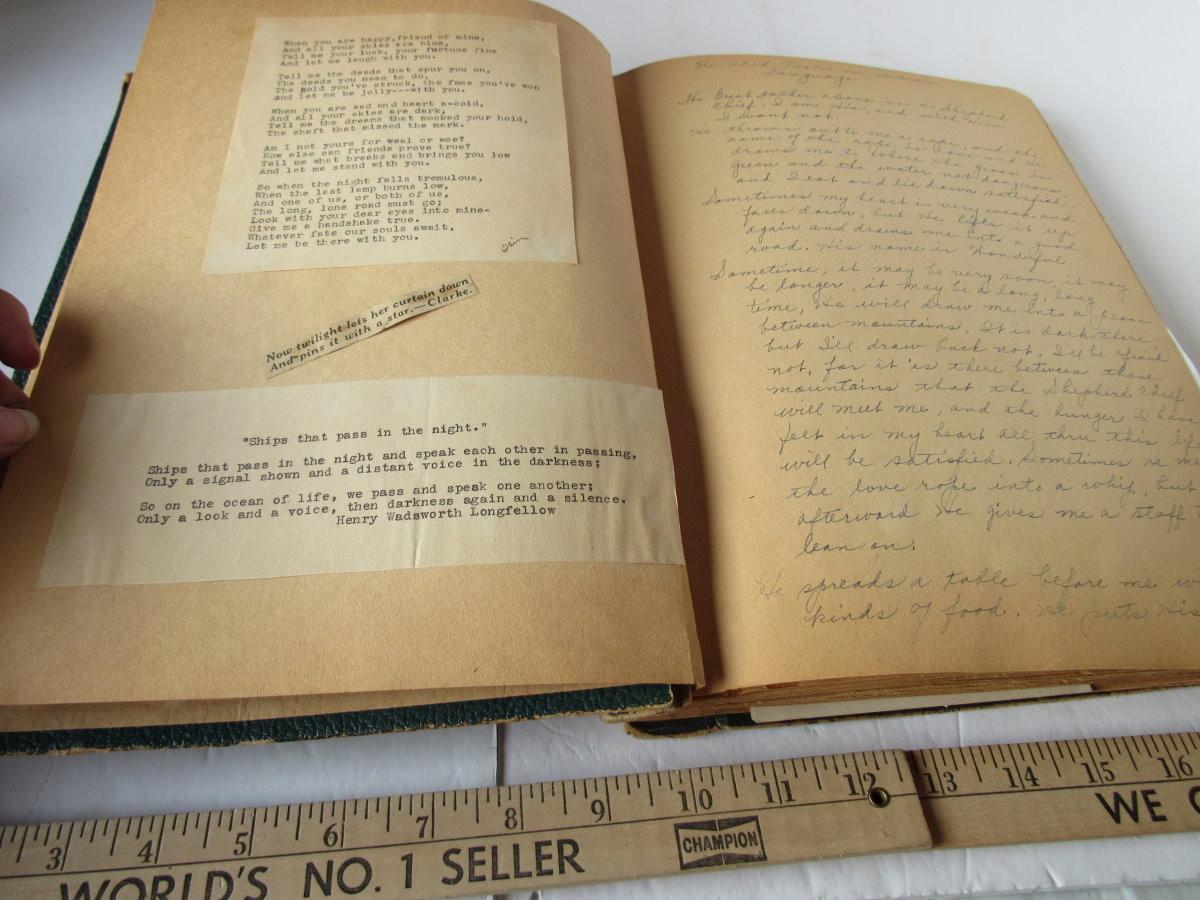 When you are happy, friend of mine,
And all your skies are blue,
Tell me your luck, your fortune fine
And let me laugh with you.
Tell me the deeds that spur you on,
The deeds you mean to do,
The gold you've struck, the fame you've won
And let me be jolly---with you.
When you are sad and heart a-cold,
And all your skies are dark,
Tell me the dreams that mocked your hold,
The shaft that missed the mark.
Am I not yours for weal or woe?
How else can friends prove true?
Tell me what breaks and brings you low
And let me stand with you.
So when the night falls tremulous,
When the last lamp burns low,
And one of us, or both of us,
The long, lone road must go;
Look with your dear eyes into mine-
Give me a handshake true.
Whatever fate our souls await,
Let me be there with you.
Now twilight lets her curtain down
And pins it with a star.—Clarke.
"Ships that pass in the night."
Ships that pass in the night and speak each other in passing,
Only a signal shown and a distant voice in the darkness;
So on the ocean of life, we pass and speak one another;
Only a look and a voice, then darkness again and a silence.
Henry Wadsworth Longfellow
The in
Language
The Great Father above is a Shepherd
Chief. I am His, and with Him
I want not.
He throws out to me a rope, and the
name of the rope is love and He
draws me to where the grass is
green and the water not dangerous
and I eat and lie down satisfied.
Sometimes my heart is very weak and
falls down, but He lifts it up
again and draws me into a good
road. His name is Wonderful
Sometime, it may be very soon, it may
be longer, it may be a long, long
time, He will draw me into a place
between mountains. It is dark there,
but I'll draw back not, I'll be afraid
not, for it is there between these
mountains that the Shepherd Chief
will meet me, and the hunger I have
felt in my heart all thru this
will be satisfied. Sometimes He
the love rope into a whip, but
afterward He gives me a staff
lean on.
He spreads a table before me
kinds of food. He puts His
3 4 5 6 7 8 9 10 11 12 13 14 15 16
WORLD'S NO. 1 SELLER CHAMPION WE